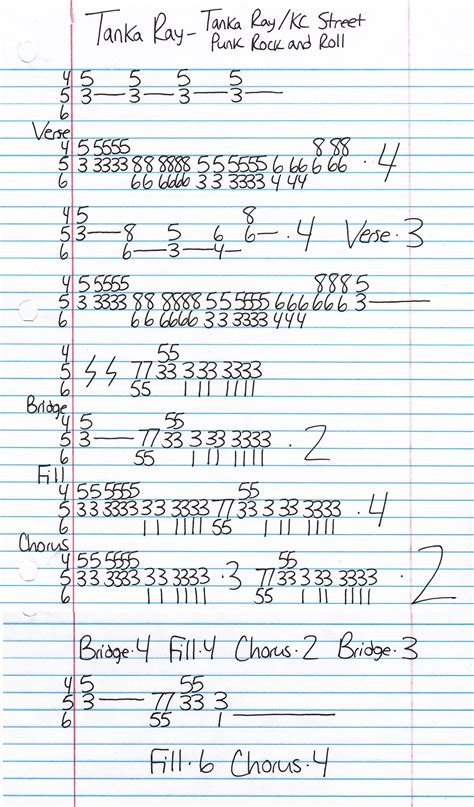 Tanka Ray - Tanka Ray/KC Street
Punk Rock and Roll
4 5 5 5 5
5 3 — 3 — 3 — 3 —
6
Verse
4 5 5555 8 88
5 3 3333 88 8888 5 5 5555 6 66 6 66 · 4
6 66 6666 3 3 3333 4 44
4 5 8
5 3 — 8 5 6 6 — · 4 Verse · 3
6 6 — 3 — 4 —
4 5 5555 888 5
5 3 3333 88 8888 55 5555 666 666 3 —
6 66 6666 33 3333 444
4 55
5 77 33 333 3333
6 55 1 11 1111
Bridge
4 5 55
5 3 — 77 33 3 33 3333 · 2
6 55 1 11 1111
Fill
4 55 5555 55
5 33 3333 33 3333 77 33 3 33 3333 · 4
6 11 1111 55 1 11 1111
Chorus
4 55 5555 55
5 33 3333 33 3333 · 3 77 33 3 33 3333 · 2
6 11 1111 55 1 11 1111
Bridge · 4 Fill · 4 Chorus · 2 Bridge · 3
4 5 55
5 3 — 77 33 3
6 55 1 —
Fill · 6 Chorus · 4